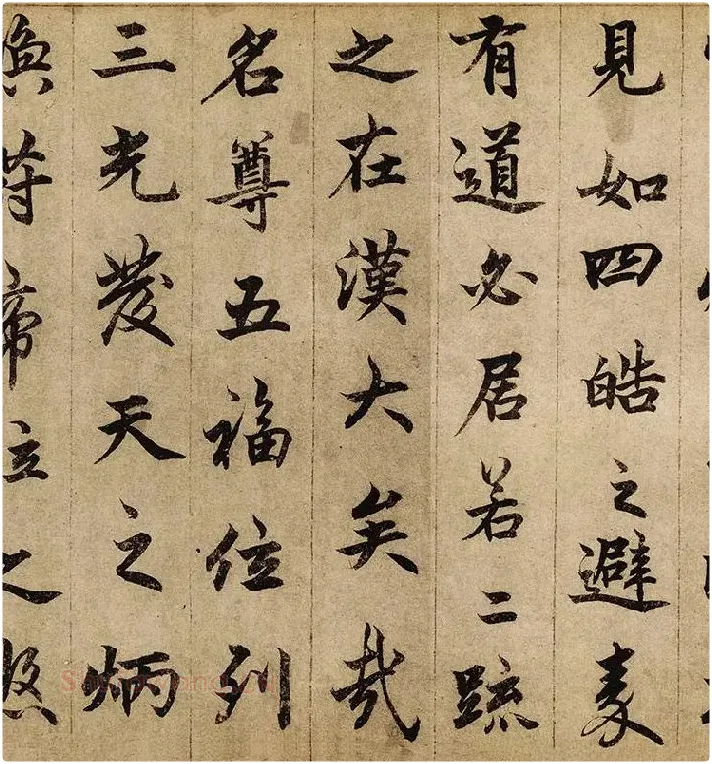 見如四皓之避秦
有道必居若二疏
之在漢大矣哉
名尊五福位列
三光發天之炳
煥符帝立之